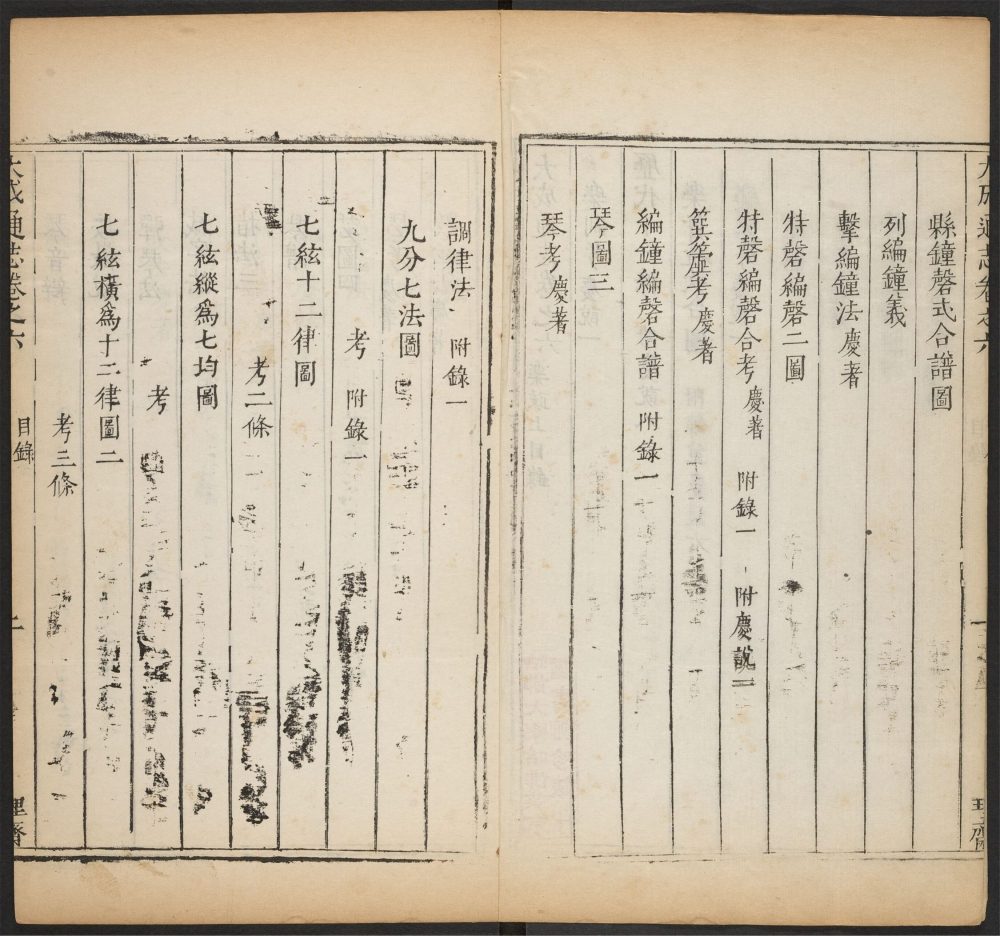 大成通志卷之六
縣鐘磬式合譜圖
列編鐘義
擊編鐘法慶著
特磬編磬二圖
特磬編磬合考慶著 附錄一 附慶說二
筍簴考慶著
編鐘編磬合譜附錄一
琴圖三
琴考慶著
調律法 附錄一
九分七法圖
考 附錄一
七絃十二律圖
考二條
七絃縱為七均圖
考
七絃橫為十二律圖二
考三條
大成通志卷之六 目錄 二 理齋